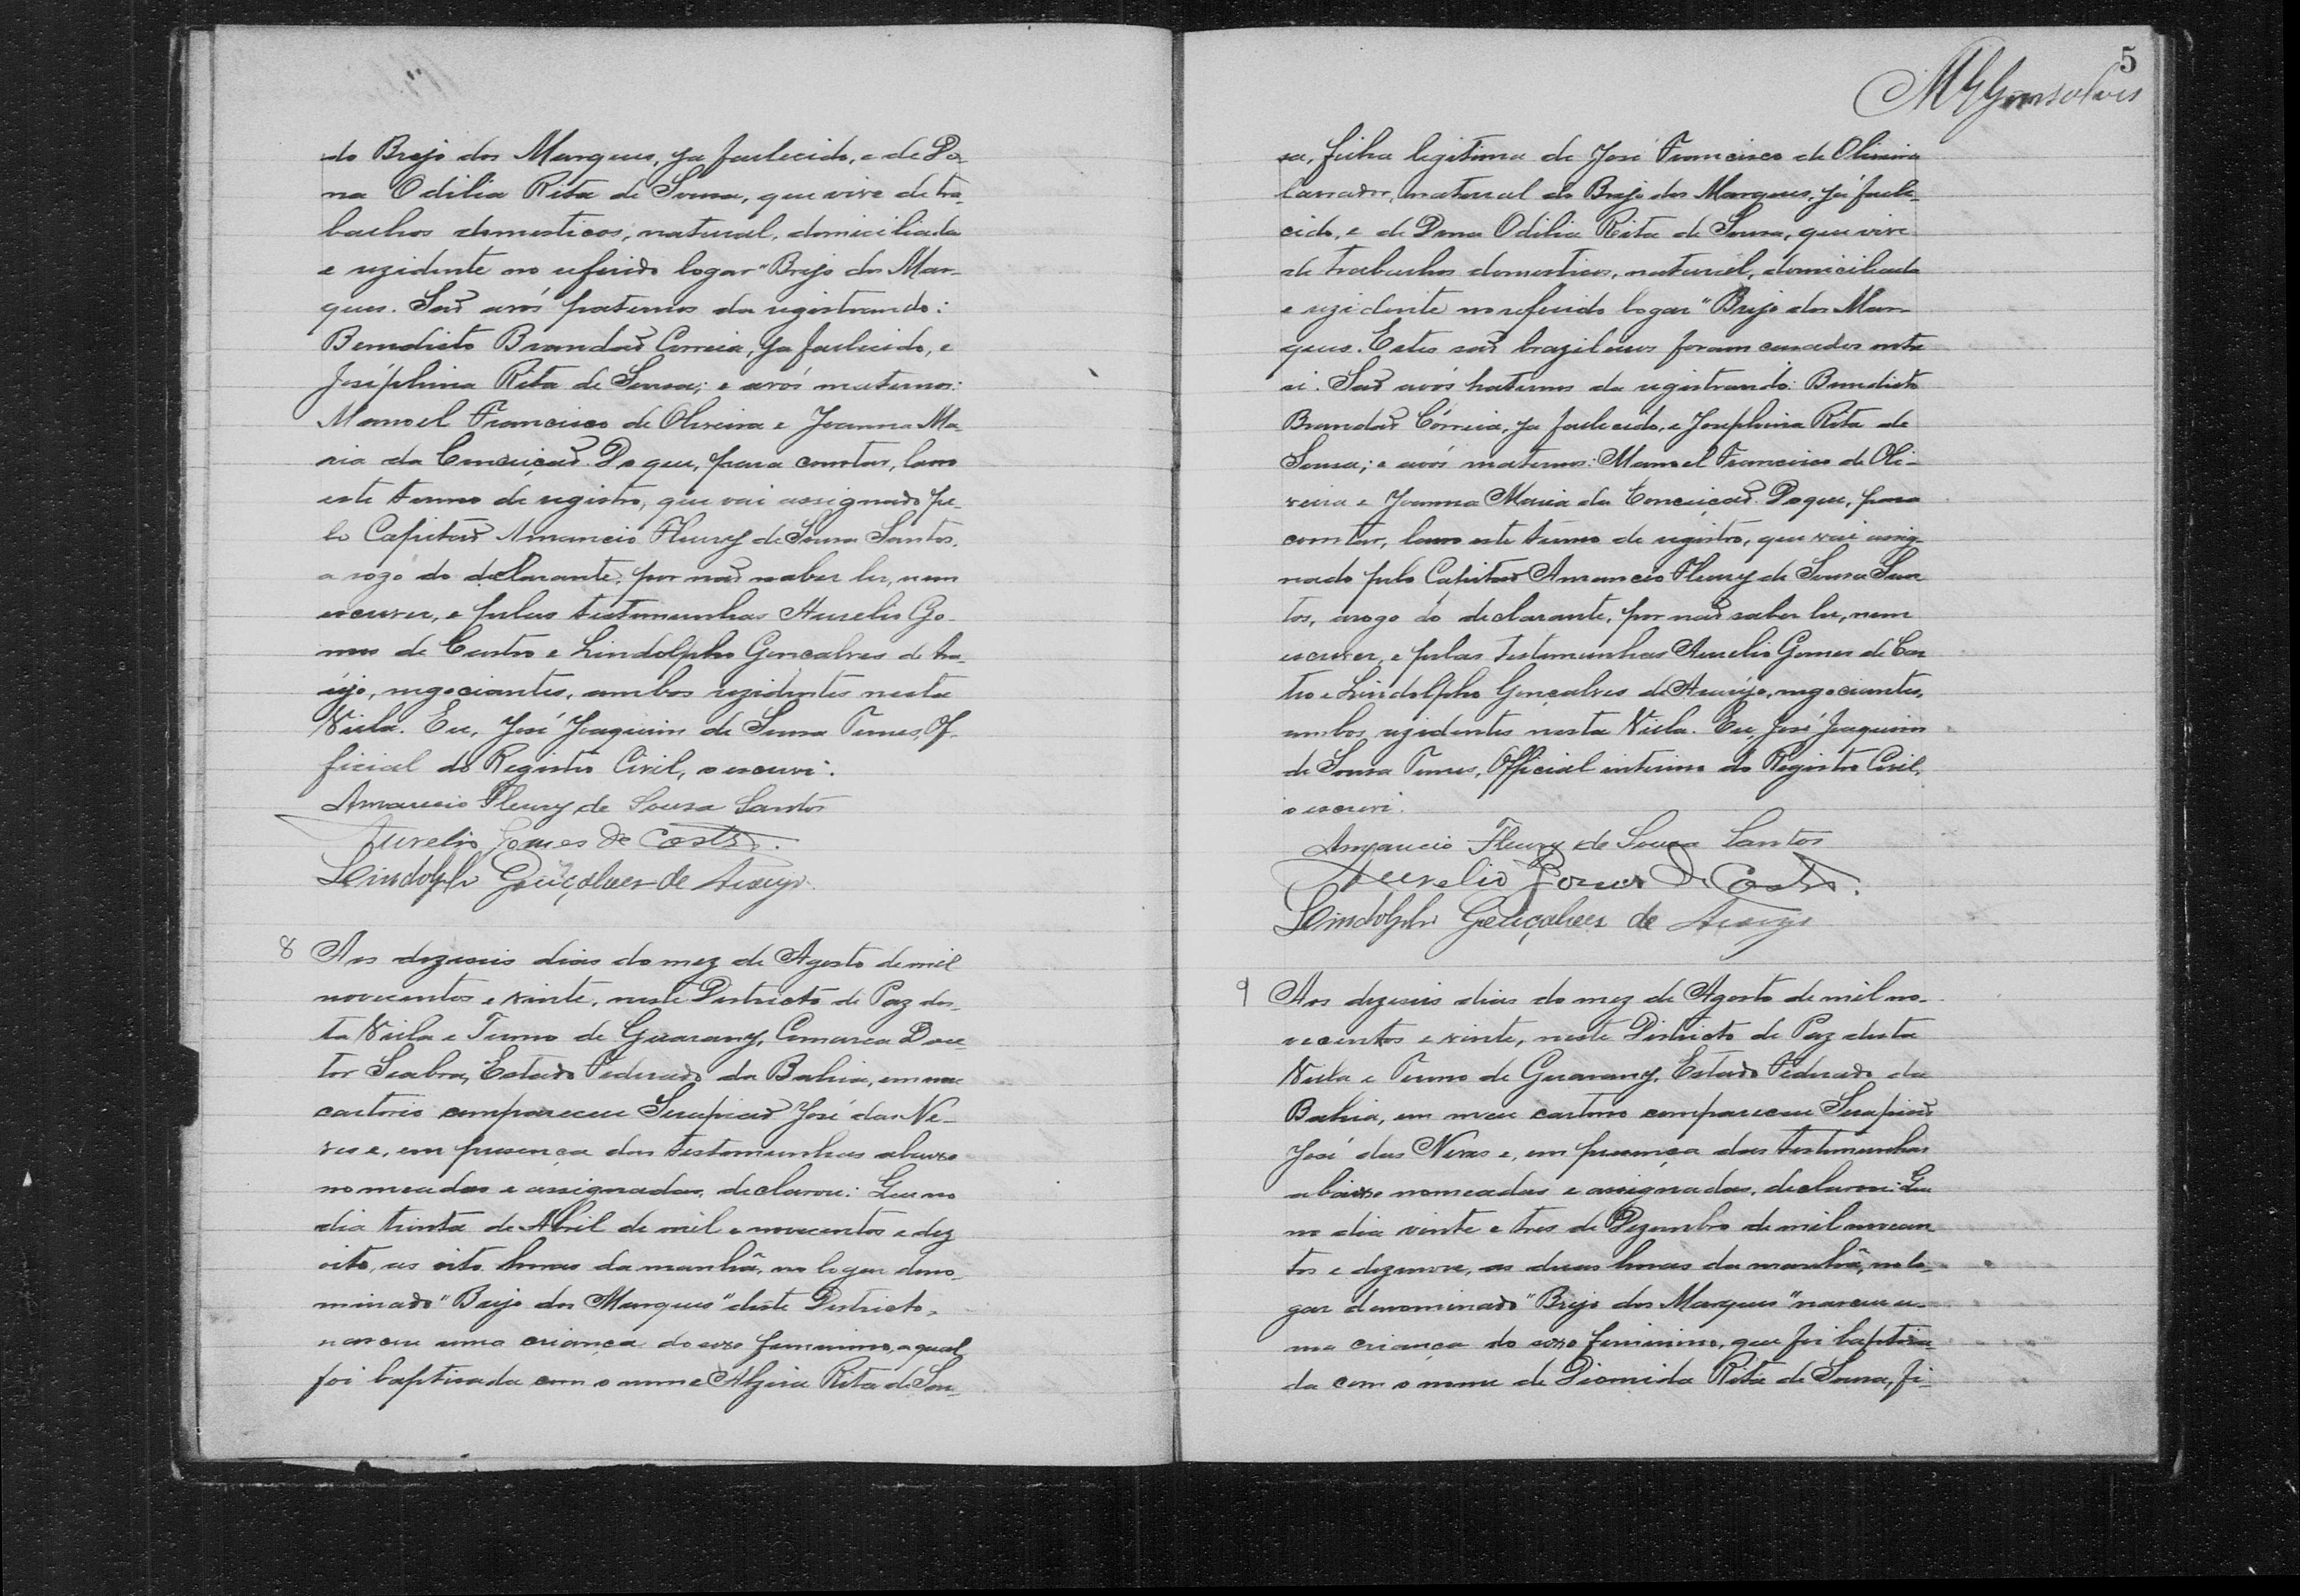 do Brejo dos Marques, ja fallecido, e de Do-
na Odilia Rita de Sousa, que vive de tra-
balhos domesticos, natural, domiciliada
e rezidente no referido logar "Brejo dos Mar-
ques. Saõ avós paternos da registrando:
Benedicto Brandaõ Correia, ja fallecido, e
Joséphina Rita de Sousa; e avós maternos:
Manoel Francisco de Oliveira e Joanna Ma-
ria da Conceiçaõ. Do que, para constar, lavro
este termo de registro, que vai assignado pe-
lo Capitaõ Amancio Fleury de Sousa Santos,
a rogo do declarante, por naõ saber ler, nem
escrever, e pelas testemunhas Aurelio Go-
mes de Castro e Lindolpho Gonçalves de Ara-
újo, negociantes, ambos rezidentes nesta
Villa. Eu, José Joaquim de Sousa Tunes, Of-
ficial do Registro Civil, o escrevi.
Amancio Fleury de Sousa Santos
Aurelio Gomes de Castro.
Lindolpho Gonçalves de Araujo.
8 Aos dezeseis dias do mez de Agosto de mil
novecentos e vinte, neste Districto de Paz des-
ta Villa e Termo de Guarany, Comarca Dou-
tor Seabra, Estado Federado da Bahia, em meu
cartorio compareceu Serapiaõ José das Ne-
ves e, em presença das testemunhas abaixo
nomeadas e assignadas, declarou: Que no
dia trinta de Abril de mil e novecentos e dez
oito, as oito horas da manhã, no logar deno-
minado "Brejo dos Marques" deste Districto,
nasceu uma criança do sexo femenino, a qual
foi baptisada com o nome Alzira Rita de Sou-
5
M G Gonsalves
sa, filha legitima de José Francisco de Oliveira
lavrador, natural do Brejo dos Marques, já falle-
cido, e de Dona Odilia Rita de Sousa, que vive
de trabalhos domesticos, natural, domiciliada
e rezidente no referido logar "Brejo dos Mar-
ques. Estes saõ brazileiros foram casados entre
si. Saõ avós paternos da registrando: Benedicto
Brandaõ Córreia, ja fallecido, e Josephina Rita de
Sousa; e avós maternos: Manoel Francisco de Oli-
veira e Joanna Maria da Conceiçaõ. Do que, para
constar, lavro este termo de registro, que vai assig-
nado pelo Capitaõ Amancio Fleury de Sousa San
tos, arogo do declarante, por naõ saber ler, nem
escrever, e pelas testemunhas Aurelio Gomes de Cas
tro e Lindolpho Gonçalves de Araújo, negociantes,
ambos rezidentes nesta Villa. Eu, José Joaquim
de Sousa Tunes, Official interino do Registro Civil,
o escrevi.
Amancio Fleury de Sousa Santos
Aurelio Gomes de Castro.
Lindolpho Gonçalves de Araujo
9 Aos dezeseis dias do mez de Agosto de mil no-
vecentos e vinte, neste Districto de Paz desta
Villa e Termo de Guarany, Estado Federado da
Bahia, em meu cartorio compareceu Serapiaõ
José das Neves e, em presença das testemunhas
abaixo nomeadas e assignadas, declarou: Que
no dia vinte e tres de Dezembro de mil novecen
tos e dezenove, as duas horas da manhã, no lo-
gar denominado "Brejo dos Marques" nasceu u-
ma criança do sexo feminino, que foi baptisa-
da com o nome de Diomida Rita de Sousa, fi-